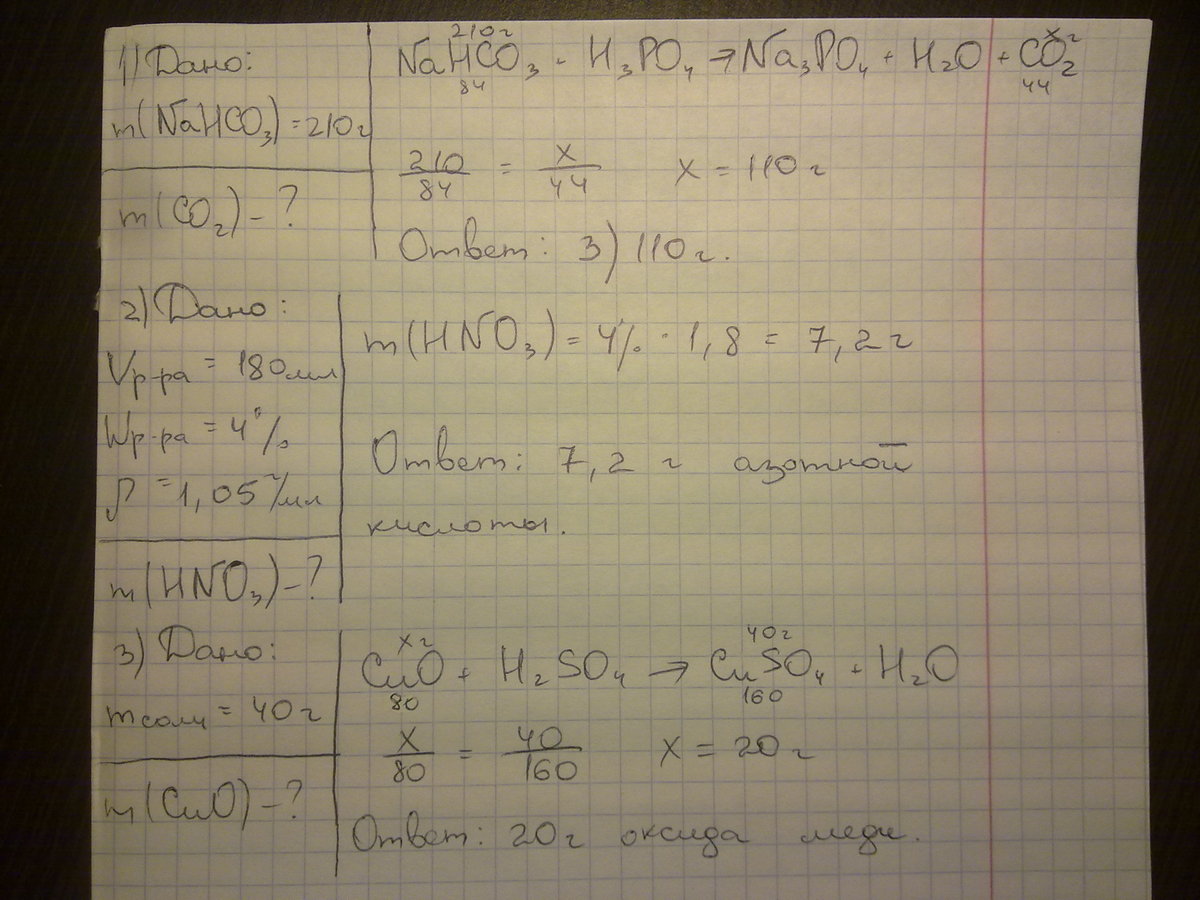 1) Дано:
m(NaHCO₃) = 210г
m(CO₂) - ?
210г x г
NaHCO₃ - H₃PO₄ → Na₃PO₄ + H₂O + CO₂
84 44
210/84 = x/44 x = 110 г
Ответ: 3) 110 г.
2) Дано:
Vр-ра = 180 мл
Wр-ра = 4%
ρ = 1,05 г/мл
m(HNO₃) - ?
m(HNO₃) = 4% · 1,8 = 7,2 г
Ответ: 7,2 г азотной
кислоты.
3) Дано:
mсоли = 40 г
m(CuO) - ?
x г 40 г
CuO + H₂SO₄ → CuSO₄ + H₂O
80 160
x/80 = 40/160 x = 20 г
Ответ: 20 г оксида меди.